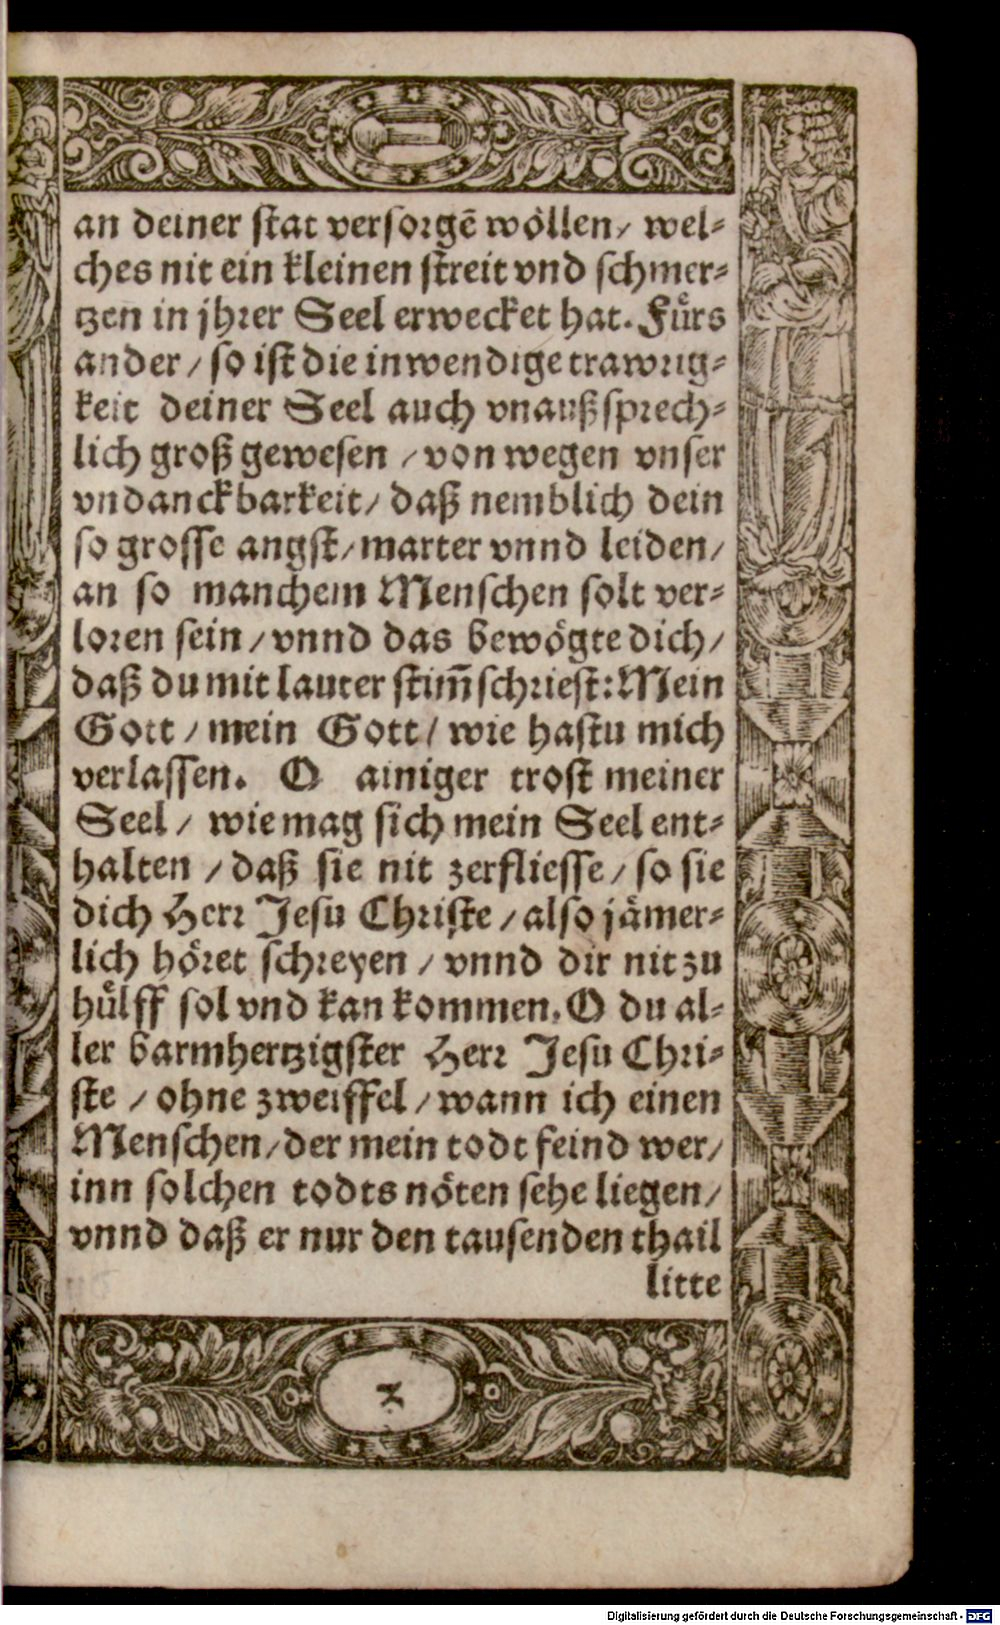 an deiner stat versorgē wöllen/ wel-
ches nit ein kleinen streit vnd schmer-
tzen in jhrer Seel erwecket hat. Fürs
ander/ so ist die inwendige trawrig-
keit deiner Seel auch vnaußsprech-
lich groß gewesen/ von wegen vnser
vndanckbarkeit/ daß nemblich dein
so grosse angst/ marter vnnd leiden/
an so manchem Menschen solt ver-
loren sein/ vnnd das bewögte dich/
daß du mit lauter stim̄ schriest: Mein
Gott/ mein Gott/ wie hastu mich
verlassen. O ainiger trost meiner
Seel/ wie mag sich mein Seel ent-
halten/ daß sie nit zerfliesse/ so sie
dich Herr Jesu Christe/ also jämer-
lich höret schreyen/ vnnd dir nit zu
hülff sol vnd kan kommen. O du al-
ler barmhertzigster Herr Jesu Chri-
ste/ ohne zweiffel/ wann ich einen
Menschen/ der mein todt feind wer/
inn solchen todts nöten sehe liegen/
vnnd daß er nur den tausenden thail
litte
Digitalisierung gefördert durch die Deutsche Forschungsgemeinschaft - DFG